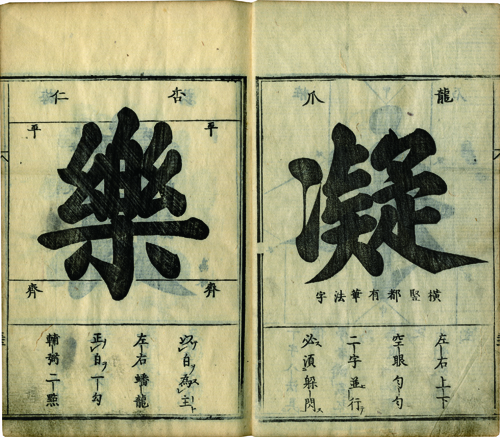 龍爪
凝
橫豎都有筆法字
左右上下
空眼勻勻
二字並行
必須躲閃
杏仁
平 平
樂
齊 齊
以白為主
左右蟠龍
正白一勾
輔弼二㸃